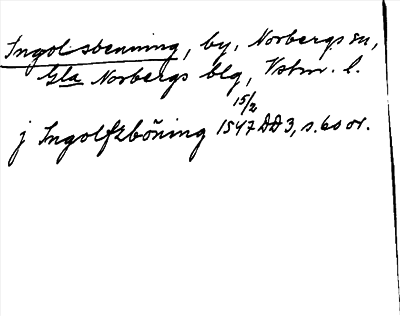 Ingolsbenning, by, Norbergs sn,
Gla Norbergs blg, Vstm. l.
15/2
j Ingolfzböning 1547 DD 3, s. 60 or.